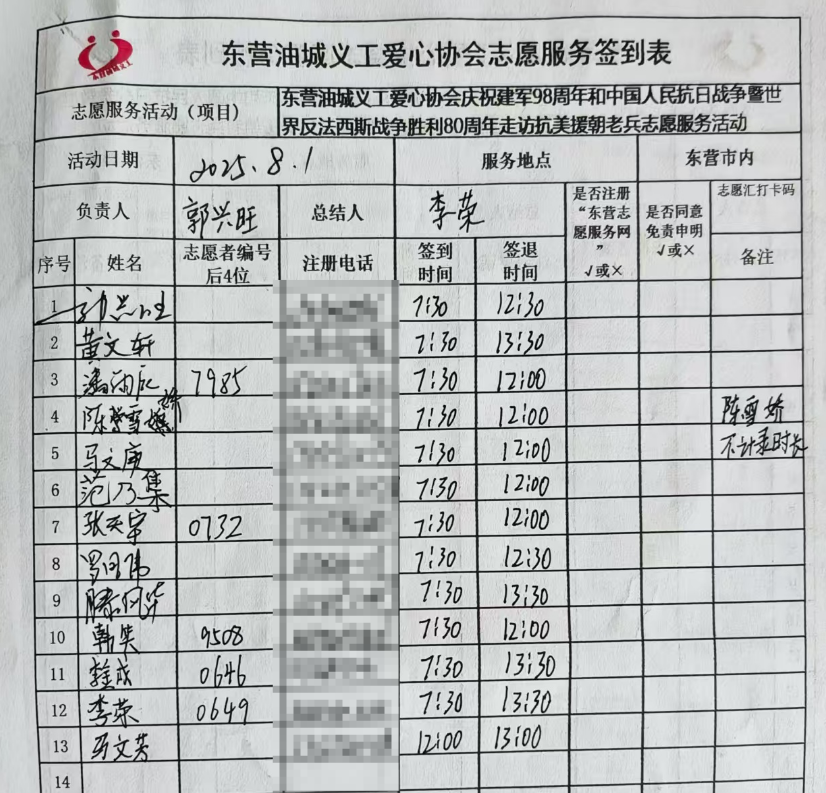 东营油城义工
东营油城义工爱心协会志愿服务签到表
志愿服务活动（项目） 东营油城义工爱心协会庆祝建军98周年和中国人民抗日战争暨世
界反法西斯战争胜利80周年走访抗美援朝老兵志愿服务活动
活动日期 2025.8.1 服务地点 东营市内
负责人 郭兴旺 总结人 李荣 是否注册“东营志愿服务网” √或× 是否同意免责申明 √或× 志愿汇打卡码
序号 姓名 志愿者编号后4位 注册电话 签到时间 签退时间 备注
1 7:30 12:30
2 黄文轩 7:30 13:30
3 7985 7:30 12:00
4 陈雪娇 7:30 12:00 陈雪娇
5 马文库 7:30 12:00 不计录时长
6 范乃集 7:30 12:00
7 张天宇 0732 7:30 12:00
8 7:30 12:30
9 7:30 13:30
10 韩英 9508 7:30 12:00
11 0646 7:30 13:30
12 李荣 0649 7:30 13:30
13 马文芳 12:00 13:00
14